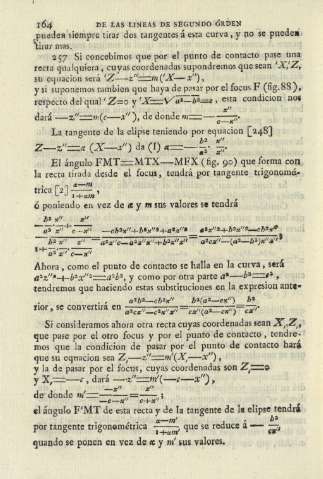 164 DE LAS LINEAS DE SEGUNDO ÓRDEN
pueden siempre tirar dos tangentes á esta curva, y no se pueden
tirar mas.
257 Si concebimos que por el punto de contacto pase una
recta qualquiera, cuyas coordenadas supondremos que sean 'X,'Z,
su equacion será 'Z—z″=m('X—x″),
y si suponemos tambien que haya de pasar por el focus F (fig.88),
respecto del qual 'Z=0 y 'X=√a²—b²=c, esta condicion nos
dará —z″=m(c—x″), de donde m=—z″/c—x″.
La tangente de la elipse teniendo por equacion [248]
Z—z″=α (X—x″) da (I) α=—b²/a² x″/z″.
El ángulo FMT=MTX—MFX (fig. 90) que forma con
la recta tirada desde el focus, tendrá por tangente trigonomé-
trica [2] α—m/1+αm,
ó poniendo en vez de α y m sus valores se tendrá
Ahora, como el punto de contacto se halla en la curva, será
a²z″²+b²x″²=a²b², y como por otra parte a²—b²=c²,
tendremos que haciendo estas substituciones en la expresion ante-
rior, se convertirá en a²b²—cb²x″/a²cz″—c²x″z″=b²(a²—cx″)/cz″(a²—cx″)=b²/cz″.
Si consideramos ahora otra recta cuyas coordenadas sean X,Z,
que pase por el otro focus y por el punto de contacto, tendre-
mos que la condicion de pasar por el punto de contacto hará
que su equacion sea Z,—z″=m'(X,—x″),
y la de pasar por el focus, cuyas coordenadas son Z,=0
y X,=—c, dará —z″=m'(—c—x″),
de donde m'=—z″/—c—x″=z″/c+x″;
el ángulo F'MT de esta recta y de la tangente de la elipse tendrá
por tangente trigonométrica α—m'/1+αm' que se reduce á —b²/cz″
quando se ponen en vez de α y m' sus valores.